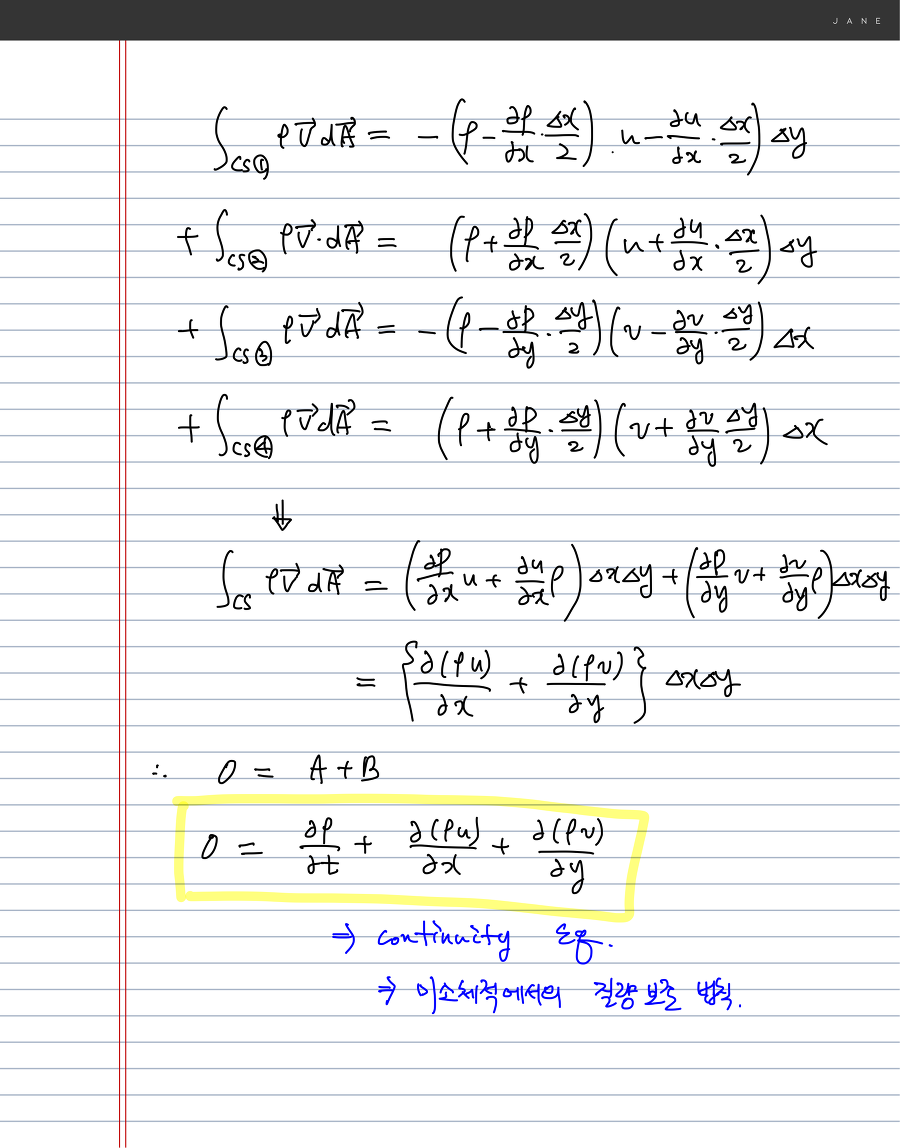 JANE
∫_{CS①} ρV⃗ dA⃗ = −(ρ − ∂ρ/∂x · Δx/2) . u − ∂u/∂x · Δx/2) Δy
+ ∫_{CS②} ρV⃗ · dA⃗ = (ρ + ∂ρ/∂x Δx/2)(u + ∂u/∂x · Δx/2) Δy
+ ∫_{CS③} ρV⃗ dA⃗ = −(ρ − ∂ρ/∂y · Δy/2)(v − ∂v/∂y · Δy/2) Δx
+ ∫_{CS④} ρV⃗ dA⃗ = (ρ + ∂ρ/∂y · Δy/2)(v + ∂v/∂y Δy/2) Δx
⇓
∫_{CS} ρV⃗ dA⃗ = (∂ρ/∂x u + ∂u/∂x ρ) ΔxΔy + (∂ρ/∂y v + ∂v/∂y ρ) ΔxΔy
= {∂(ρu)/∂x + ∂(ρv)/∂y} ΔxΔy
∴ 0 = A + B
0 = ∂ρ/∂t + ∂(ρu)/∂x + ∂(ρv)/∂y
⇒ continuity Eq.
⇒ 미소체적에서의 질량 보존 법칙.